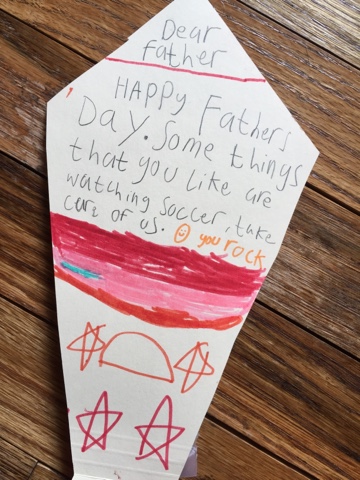 Dear
father
HAPPY Fathers
Day. Some things
that you like are
watching soccer, take
care of us. you rock